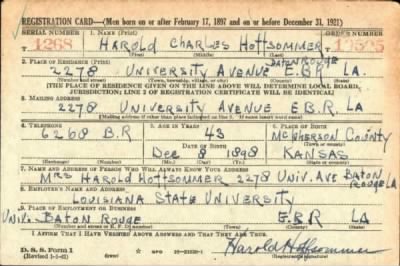 REGISTRATION CARD—(Men born on or after February 17, 1897 and on or before December 31, 1921)
SERIAL NUMBER 1. NAME (Print) ORDER NUMBER
T 1268 HAROLD CHARLES HOTTSOMMER
2. PLACE OF RESIDENCE (Print) BATON ROUGE
2278 UNIVERSITY AVENUE E.B.R. LA.
(Number and street) (Town, township, village, or city) (County) (State)
[THE PLACE OF RESIDENCE GIVEN ON THE LINE ABOVE WILL DETERMINE LOCAL BOARD
JURISDICTION; LINE 2 OF REGISTRATION CERTIFICATE WILL BE IDENTICAL]
3. MAILING ADDRESS
2278 UNIVERSITY AVENUE E.B.R. LA
[Mailing address if other than place indicated on line 2. If same insert word same]
4. TELEPHONE 5. AGE IN YEARS 6. PLACE OF BIRTH
6268 B.R 43 McPHERSON COUNTY
DATE OF BIRTH (Town or county)
DEC 8 1898 KANSAS
(Exchange) (Number) (Mo.) (Day) (Yr.) (State or country)
7. NAME AND ADDRESS OF PERSON WHO WILL ALWAYS KNOW YOUR ADDRESS
MRS HAROLD HOTTSOMMER 2278 UNIV. AVE BATON ROUGE LA
8. EMPLOYER'S NAME AND ADDRESS
LOUISIANA STATE UNIVERSITY
9. PLACE OF EMPLOYMENT OR BUSINESS
UNIV. BATON ROUGE E.B.R LA
(Number and street or R. F. D. number) (Town) (County) (State)
I AFFIRM THAT I HAVE VERIFIED ABOVE ANSWERS AND THAT THEY ARE TRUE.
D. S. S. Form 1
(Revised 1-1-42) GPO Harold Hottsommer
(Registrant's signature)